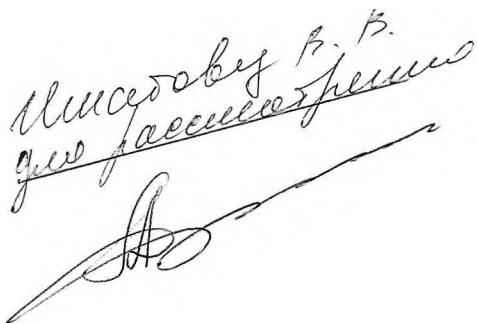 Ипатову В. В.
для рассмотрения